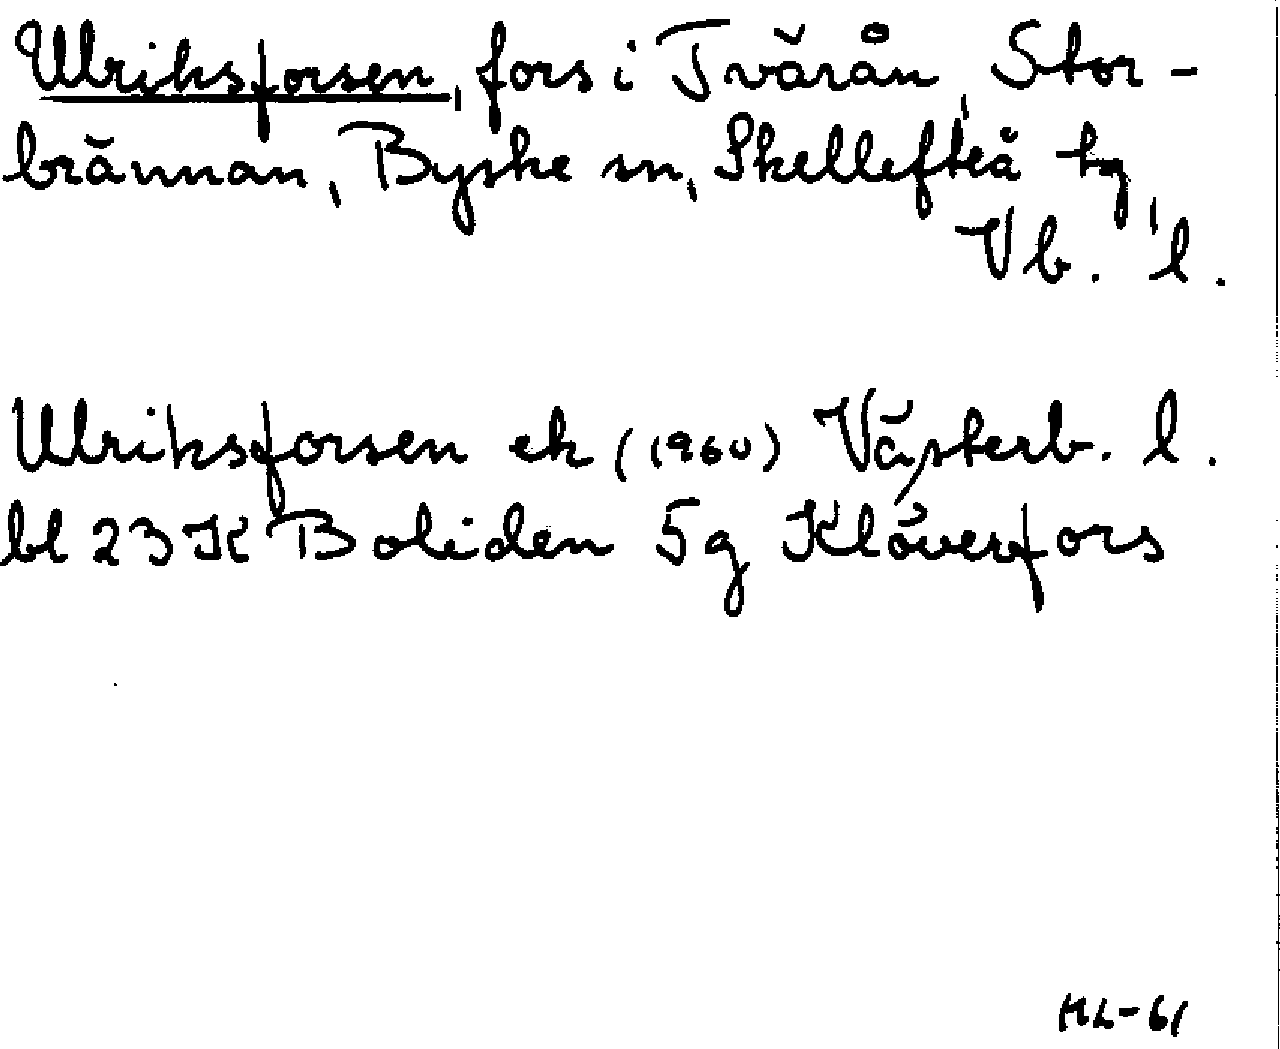 Ulriksforsen, fors i Tvärån, Stor-
brännan, Byske sn, Skellefteå tg,
Vb. l.
Ulriksforsen ek (1960) Västerb. l.
bl 23 K Boliden 5g Klöverfors
HL-61